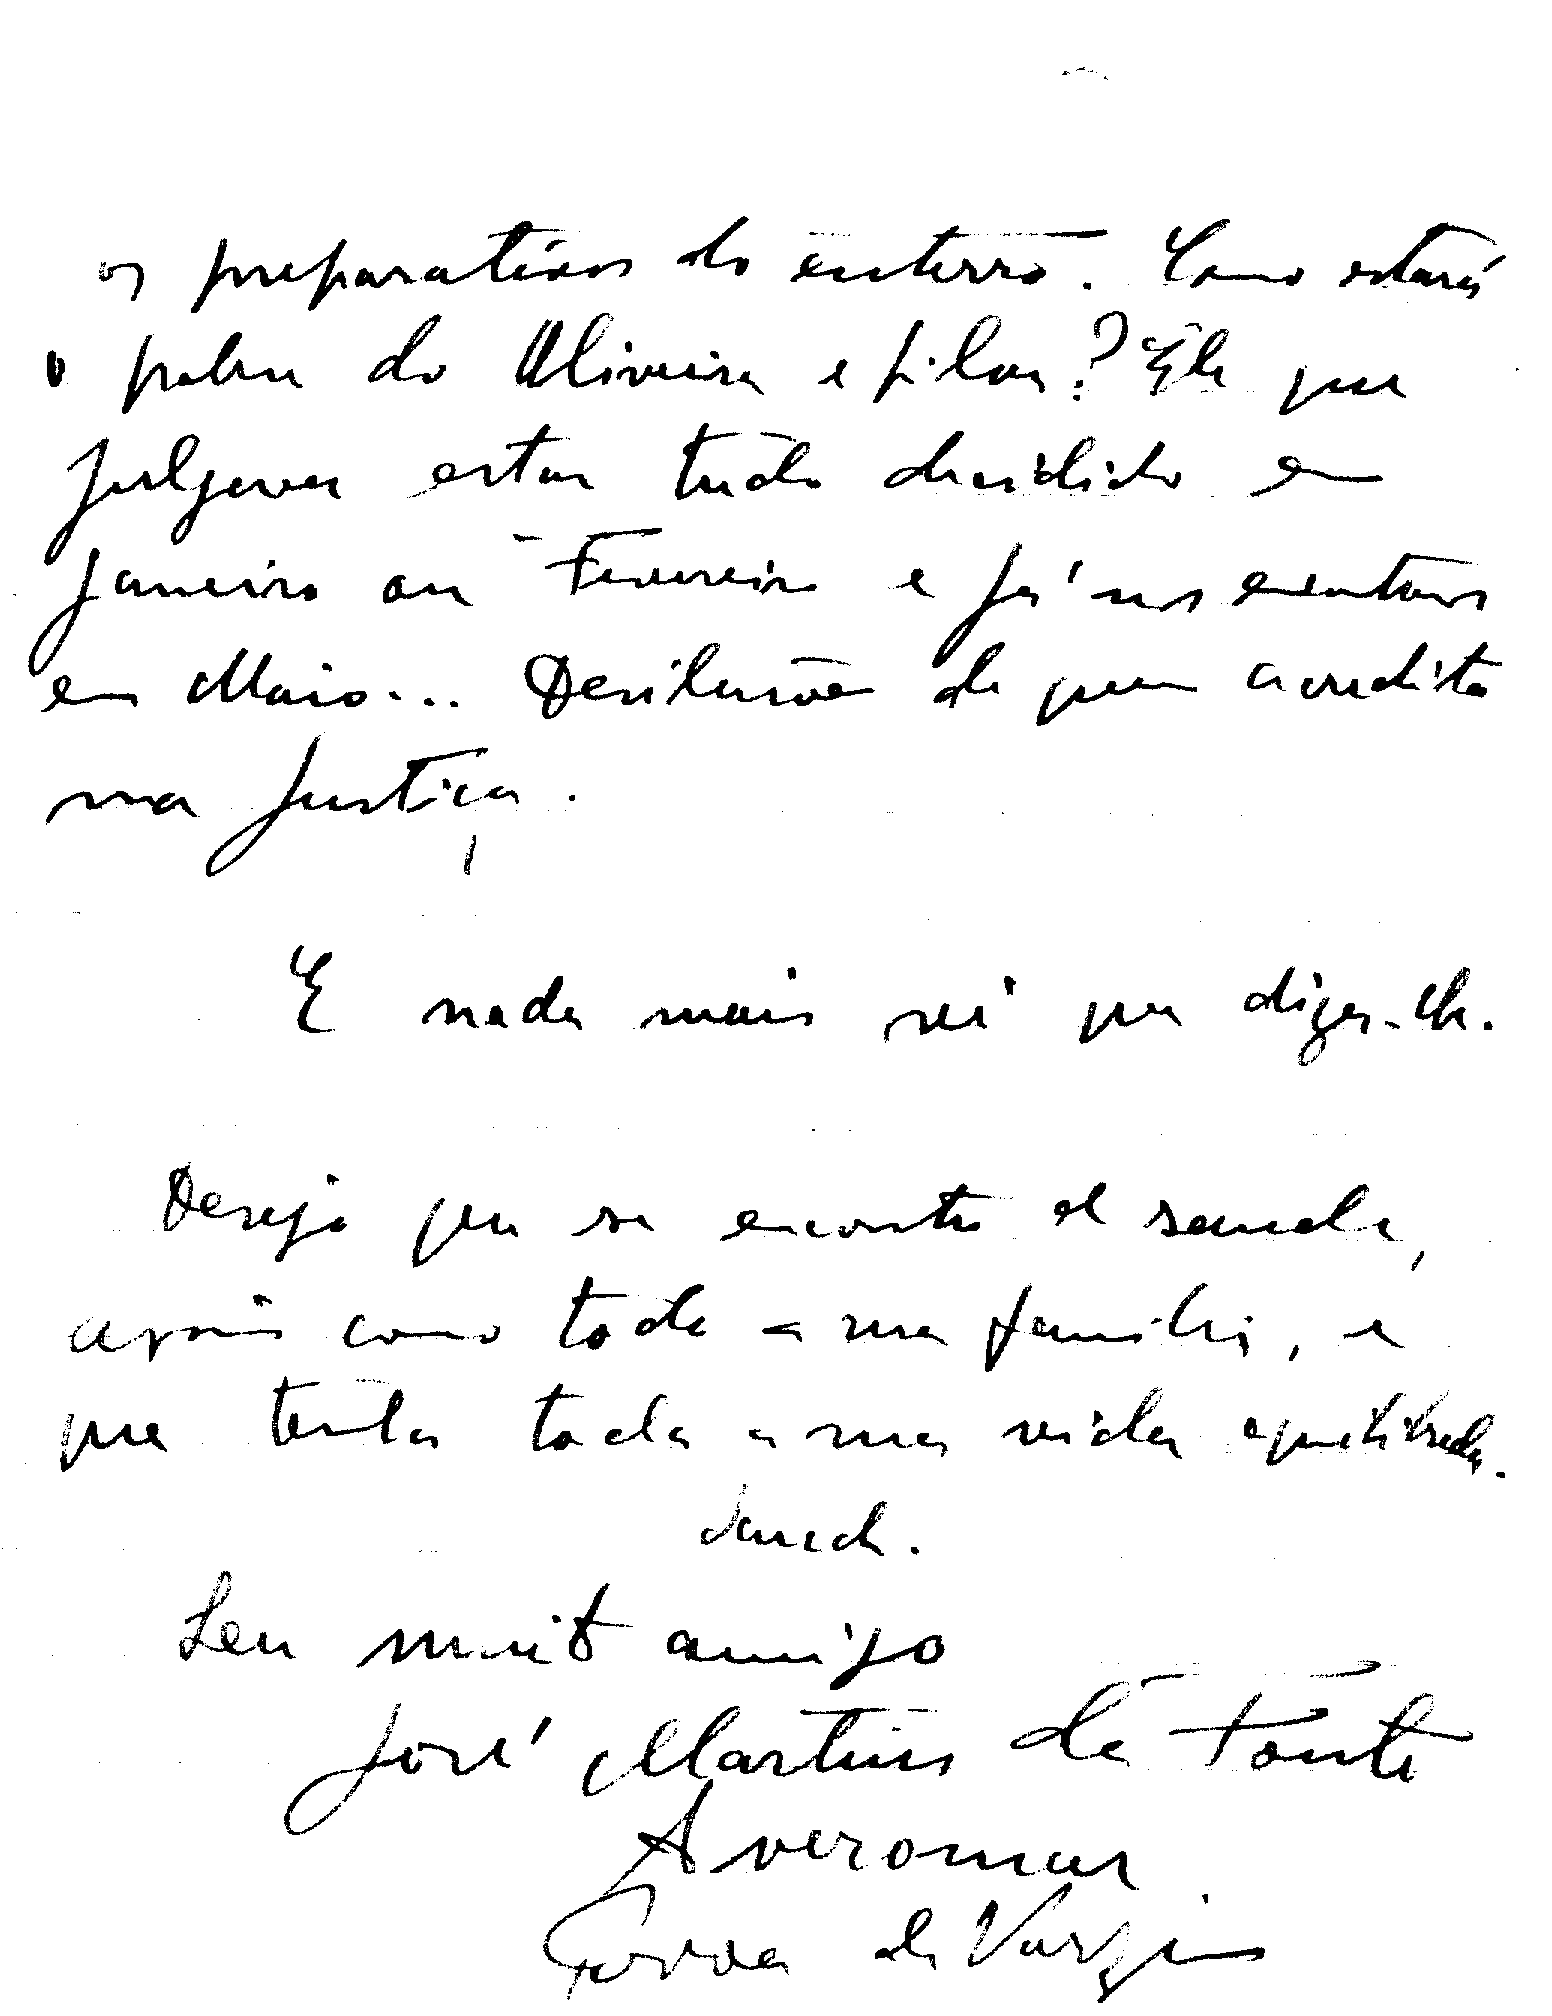 os preparativos do enterro. Como estará
o pobre do Oliveira e filhos? Ele que
julgava estar tudo decidido em
Janeiro ou Fevereiro e já nos encontramos
em Maio... Desilusões de quem acredita
na Justiça.
E nada mais sei que dizer-lhe.
Desejo que se encontre de saude,
assim como toda a sua familia, e
que tenha toda a sua vida equilibrada.
Saudo.
Seu muito amigo
José Martins da Fonte
Averomar
Povoa de Varzim